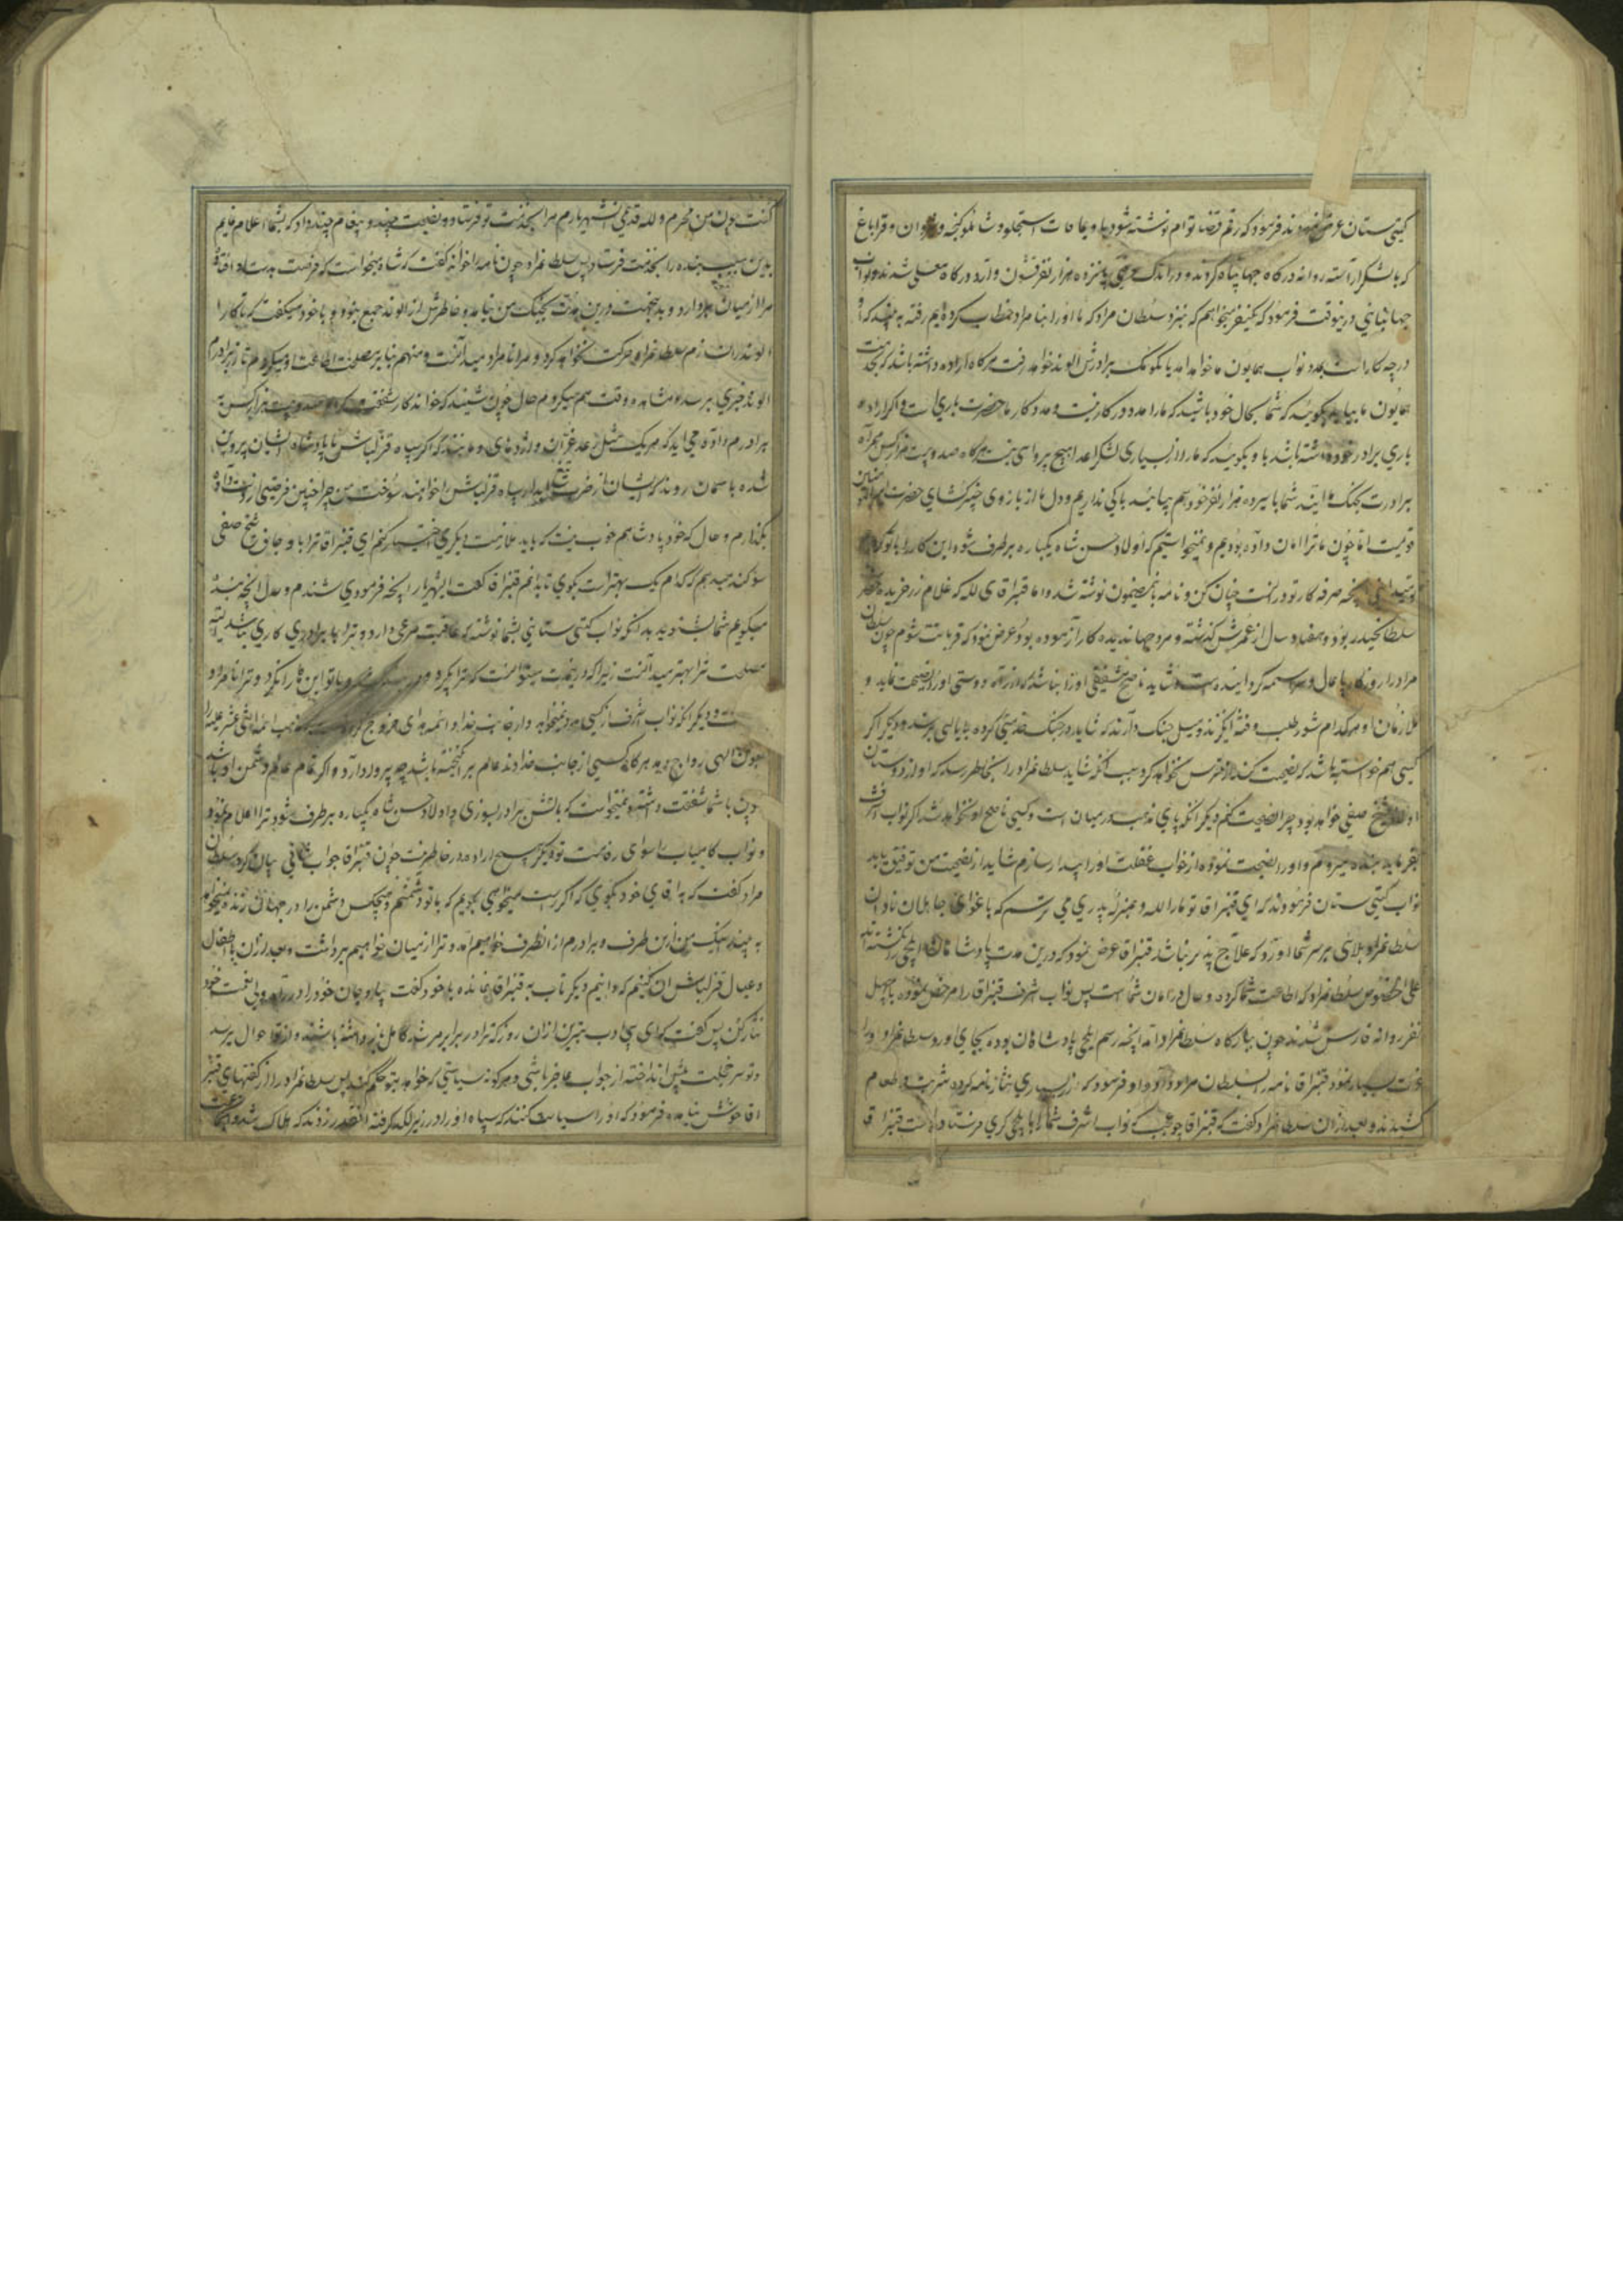 کیتی ستان عرض نمودند فرمود که رقم قضا توام نوشته شود با و بحاکمان استجلو و شاملو کنجه و شروان و قراباغ
که با لشکر آراسته روانه درکاه جهان پناه کردند و در اندک وقتی پانزده هزار نفر قشون وارد درکاه معلی شدند و نواب
جهانبانی در ینوقت فرمود که یکنفر میخواهم که نبزد سلطان مراد که ما او را بنا مراد خطاب کرده ایم رفته به بیند که او
در چه کار است بمدد نواب همایون ما خواهد آمد یا بکومک برادرش الوند خواهد رفت هرکاه اراده داشته باشد که بخدمت
همایون ما بیاید بکوئید که شما بحال خود باشید که ما را مدد در کار نیست و مددکار ما حضرت باری است و اکر اراده
یاری برادر خود داشته باشد باو بکوئید که ما را از بسیاری لشکر اعدا هیچ پروائی نیست هرکاه صد و بیست هزار کس همراه
برادرت بجنک ما آیند شما با سیزده هزار نفر خود هم بیائید باکی نداریم و دل ما از بازوی خیبر کشای حضرت امیرالمؤمنین
قویست اما چون ما ترا امان داده بودیم و نمیخواستیم که اولاد حسن شاه یکباره برطرف شود این کار را با تو کردیم
آنچه صرفه کار تو در آنست چنان کن و نامه باینمضمون نوشته شد و اما قنبر اقای لله که غلام زر خریده
سلطانحیدر بود و هفتاد سال از عمرش کذشته و مرد جهاندیده کار آزموده بود عرض نمود که قربانت شوم چون سلطان
مراد را روزکار پامال و سراسیمه کردانیده است و شاید ناصح شفیقی او را نباشد که از راه دوستی او را نصیحت نماید و
ملازمان او هرکدام شور طلب و فتنه انکیزند و میل جنک دارند که شاید در جنک خدمتی کرده بمالی برسند و دیکر اکر
کسی هم خواسته باشد که نصیحت کند از ترس نخواهد کرد بسبب آنکه شاید سلطانمراد را بخاطر رسد که او از دوستان
اولاد شیخ صفی خواهد بود چرا نصیحت کنم دیکر آنکه پای مذهب در میان است و کسی ناصح او نخواهد شد اکر نواب اشرف
بفرماید بنده میروم و او را نصیحت نموده از خواب غفلت او را بیدار سازم شاید از نصیحت من توفیق یابد
نواب کیتی ستان فرمودند که ای قنبر اقا تو ما را لله و بمنزله پدری می ترسم که باغوای جاهلان نادان
سلطانمراد بلائی بر سر شما اورد که علاج پذیر نباشد قنبر اقا عرض نمود که درین مدت پادشاهان ایلچی نکشته اند
علی الخصوص سلطانمراد که اطاعت شما کرده و حال در امان شما است پس نواب اشرف قنبر اقا را مرخص نموده با چهل
نفر روانه فارس شدند چون ببارکاه سلطانمراد آمد آنچه رسم ایلچی پادشاهان بوده بجای اورد و سلطانمراد او را
عزت بسیار نمود قنبر اقا نامه را بسلطان مراد داد و او فرمود که زر بسیاری نثار نامه کرده شربت و طعام
کشیدند و بعد از آن سلطانمراد کفت که قنبر اقا چو عجب که نواب اشرف شما را با یلچی کری فرستاده است قنبر اقا
کفت چون من محرم و لله قدیمی آنشهریارم مرا بخدمت تو فرستاد و نصیحت چند و پیغام چند داد که بشما اعلام نمایم
بدین سبب بنده را بخدمت فرستاد پس سلطانمراد چون نامه را خوانده کفت که شاه میخواست که فرصت بدست افتاده
مرا از میان بردارد و بدینجهت درین مدت بجنک من نیامد و خاطرش از الوند جمع نبود و با خود میکفت که تا کار
الوند را نسازم سلطانمراد حرکت نخواهد کرد و مرا نامراد میدانست و منهم بنا بر مصلحت اطاعت او میکردم تا از برادرم
الوند خبری برسد و مشاهده وقت هم میکردم حال چون شنید که خواندکار شفقت کرده و صد و بیست هزار کس به
برادرم داده می اید که هر یک مثل رعد غران و اژدهای دمنده اند که اکر سپاه قزلباش با پادشاه ایشان پروین
شده باسمان روند که ایشان از ضرب تیغ آبدار سپاه قزلباش را خواهند سوخت من چرا چنین فرصتی از دست داده
بکذارم و حال که خود پادشاهم خوب نیست که باید ملازمت دیکری اختیار کنم ای قنبر اقا ترا باوجاق شیخ صفی
سوکند میدهم که کدام یک بهتر است بکوی تا بدانم قنبر اقا کفت ایشهریار آنچه فرمودی شنیدم و حال آنچه بنده
میکویم شما بشنوید بدانکه نواب کیتی ستانی بشما نوشته که عاقبت مرعی دارد و ترا با برادری کاری نباشد البته
مصلحت ترا بهتر میدانست زیرا که در ینمدت میتوانست که
دیکر آنکه نواب اشرف از کسی مدد نمیخواهد و از جانب خدا و ائمه هدای خروج کرده است که مذهب ائمه اثنی عشر علیهم را
بعون الهی رواج دهد هرکاه کسی از جانب خداوند عالم برانکیخته باشد چه پروا دارد و اکر تمام عالم دشمن او باشد
چون با شما شفقت داشته و نمیخواست که باتش برادر بسوزی و اولاد حسن شاه یکباره برطرف شود ترا اعلام نمود
و نواب کامیاب را سوای رفاهیت تو دیکر هیچ اراده در خاطر نیست چون قنبر اقا جواب شافی بیان کرد سلطان
مراد کفت که به اقای خود بکوی که اکر راست میخواهی بکویم که با تو دشمنم و هیچکس دشمن را در جهان زنده نمیخواهد
به بیند اینک من ازین طرف و برادرم از انطرف خواهیم آمد و ترا از میان خواهیم برداشت و بعد از آن باطفال
و عیال قزلباش آن کنیم که دانیم دیکر تاب به قنبر اقا نمانده با خود کفت بیا و جان خود را در راه ولی نعمت خود
نثار کن پس کفت که ای بی ادب بترس از آن روز که ترا در برابر مرشد کامل باز داشته باشند و از تو احوال پرسد
و تو سر خجلت پیش انداخته از جواب عاجز باشی و هرکونه سیاستی که خواهد بتو حکم کند پس سلطانمراد را از کفتهای قنبر
اقا خوش نیامده فرمود که او را سیاست کنند که سپاه او را در زیر لکد کرفته آنقدر زدند که هلاک شد